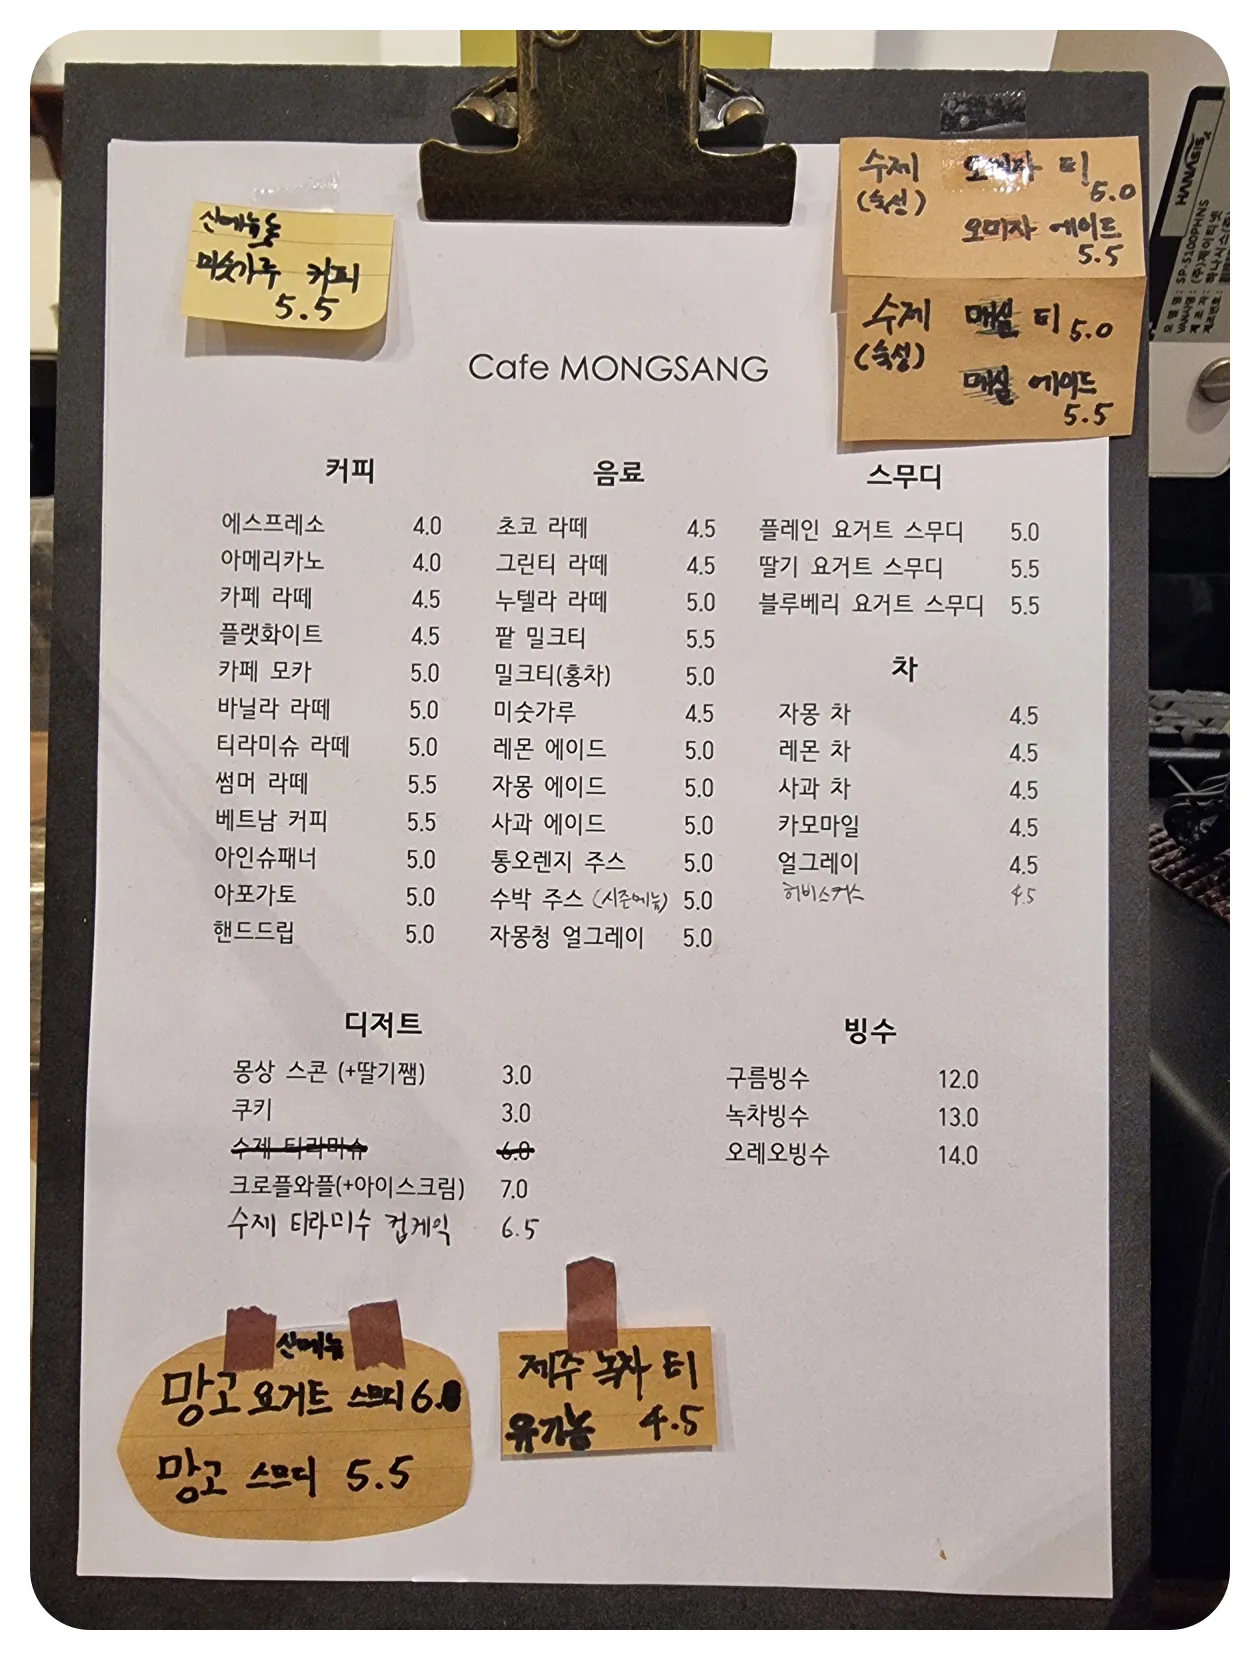 신메뉴
미숫가루 커피
5.5
수제 오미자 티
(숙성) 5.0
오미자 에이드
5.5
수제 매실 티 5.0
(숙성)
매실 에이드
5.5
HANASIS
SP-S100PHNS
Cafe MONGSANG
커피
에스프레소 4.0
아메리카노 4.0
카페 라떼 4.5
플랫화이트 4.5
카페 모카 5.0
바닐라 라떼 5.0
티라미슈 라떼 5.0
썸머 라떼 5.5
베트남 커피 5.5
아인슈패너 5.0
아포가토 5.0
핸드드립 5.0
음료
초코 라떼 4.5
그린티 라떼 4.5
누텔라 라떼 5.0
팥 밀크티 5.5
밀크티(홍차) 5.0
미숫가루 4.5
레몬 에이드 5.0
자몽 에이드 5.0
사과 에이드 5.0
통오렌지 주스 5.0
수박 주스 (시즌메뉴) 5.0
자몽청 얼그레이 5.0
스무디
플레인 요거트 스무디 5.0
딸기 요거트 스무디 5.5
블루베리 요거트 스무디 5.5
차
자몽 차 4.5
레몬 차 4.5
사과 차 4.5
카모마일 4.5
얼그레이 4.5
히비스커스 4.5
디저트
몽상 스콘 (+딸기쨈) 3.0
쿠키 3.0
수제 티라미슈 6.0
크로플와플(+아이스크림) 7.0
수제 티라미수 컵케익 6.5
빙수
구름빙수 12.0
녹차빙수 13.0
오레오빙수 14.0
신메뉴
망고 요거트 스무디 6.0
망고 스무디 5.5
제주 녹차 티
유기농 4.5